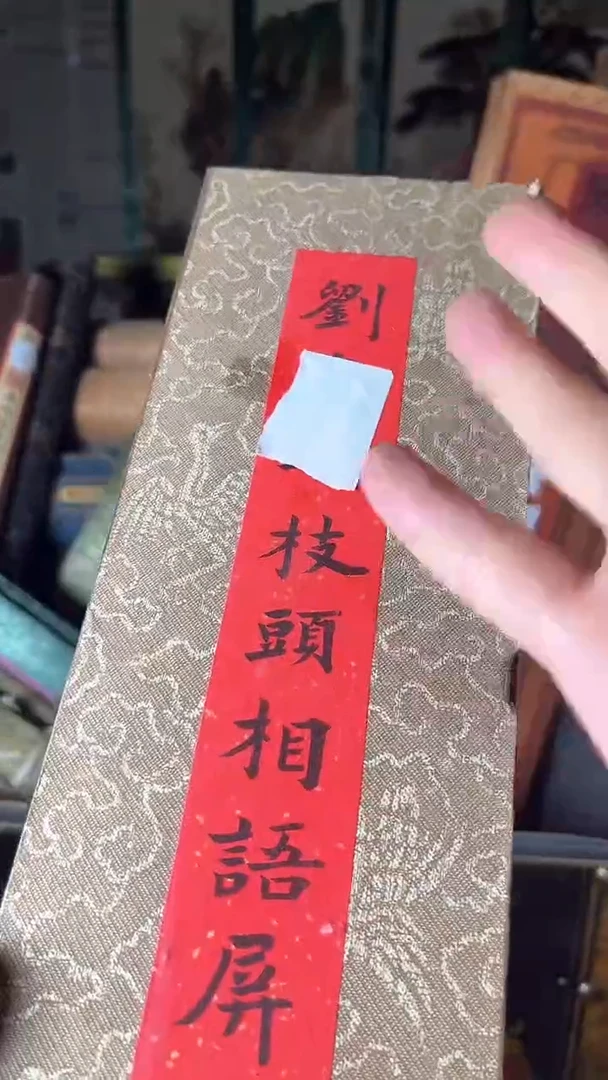 劉
枝頭相語屏